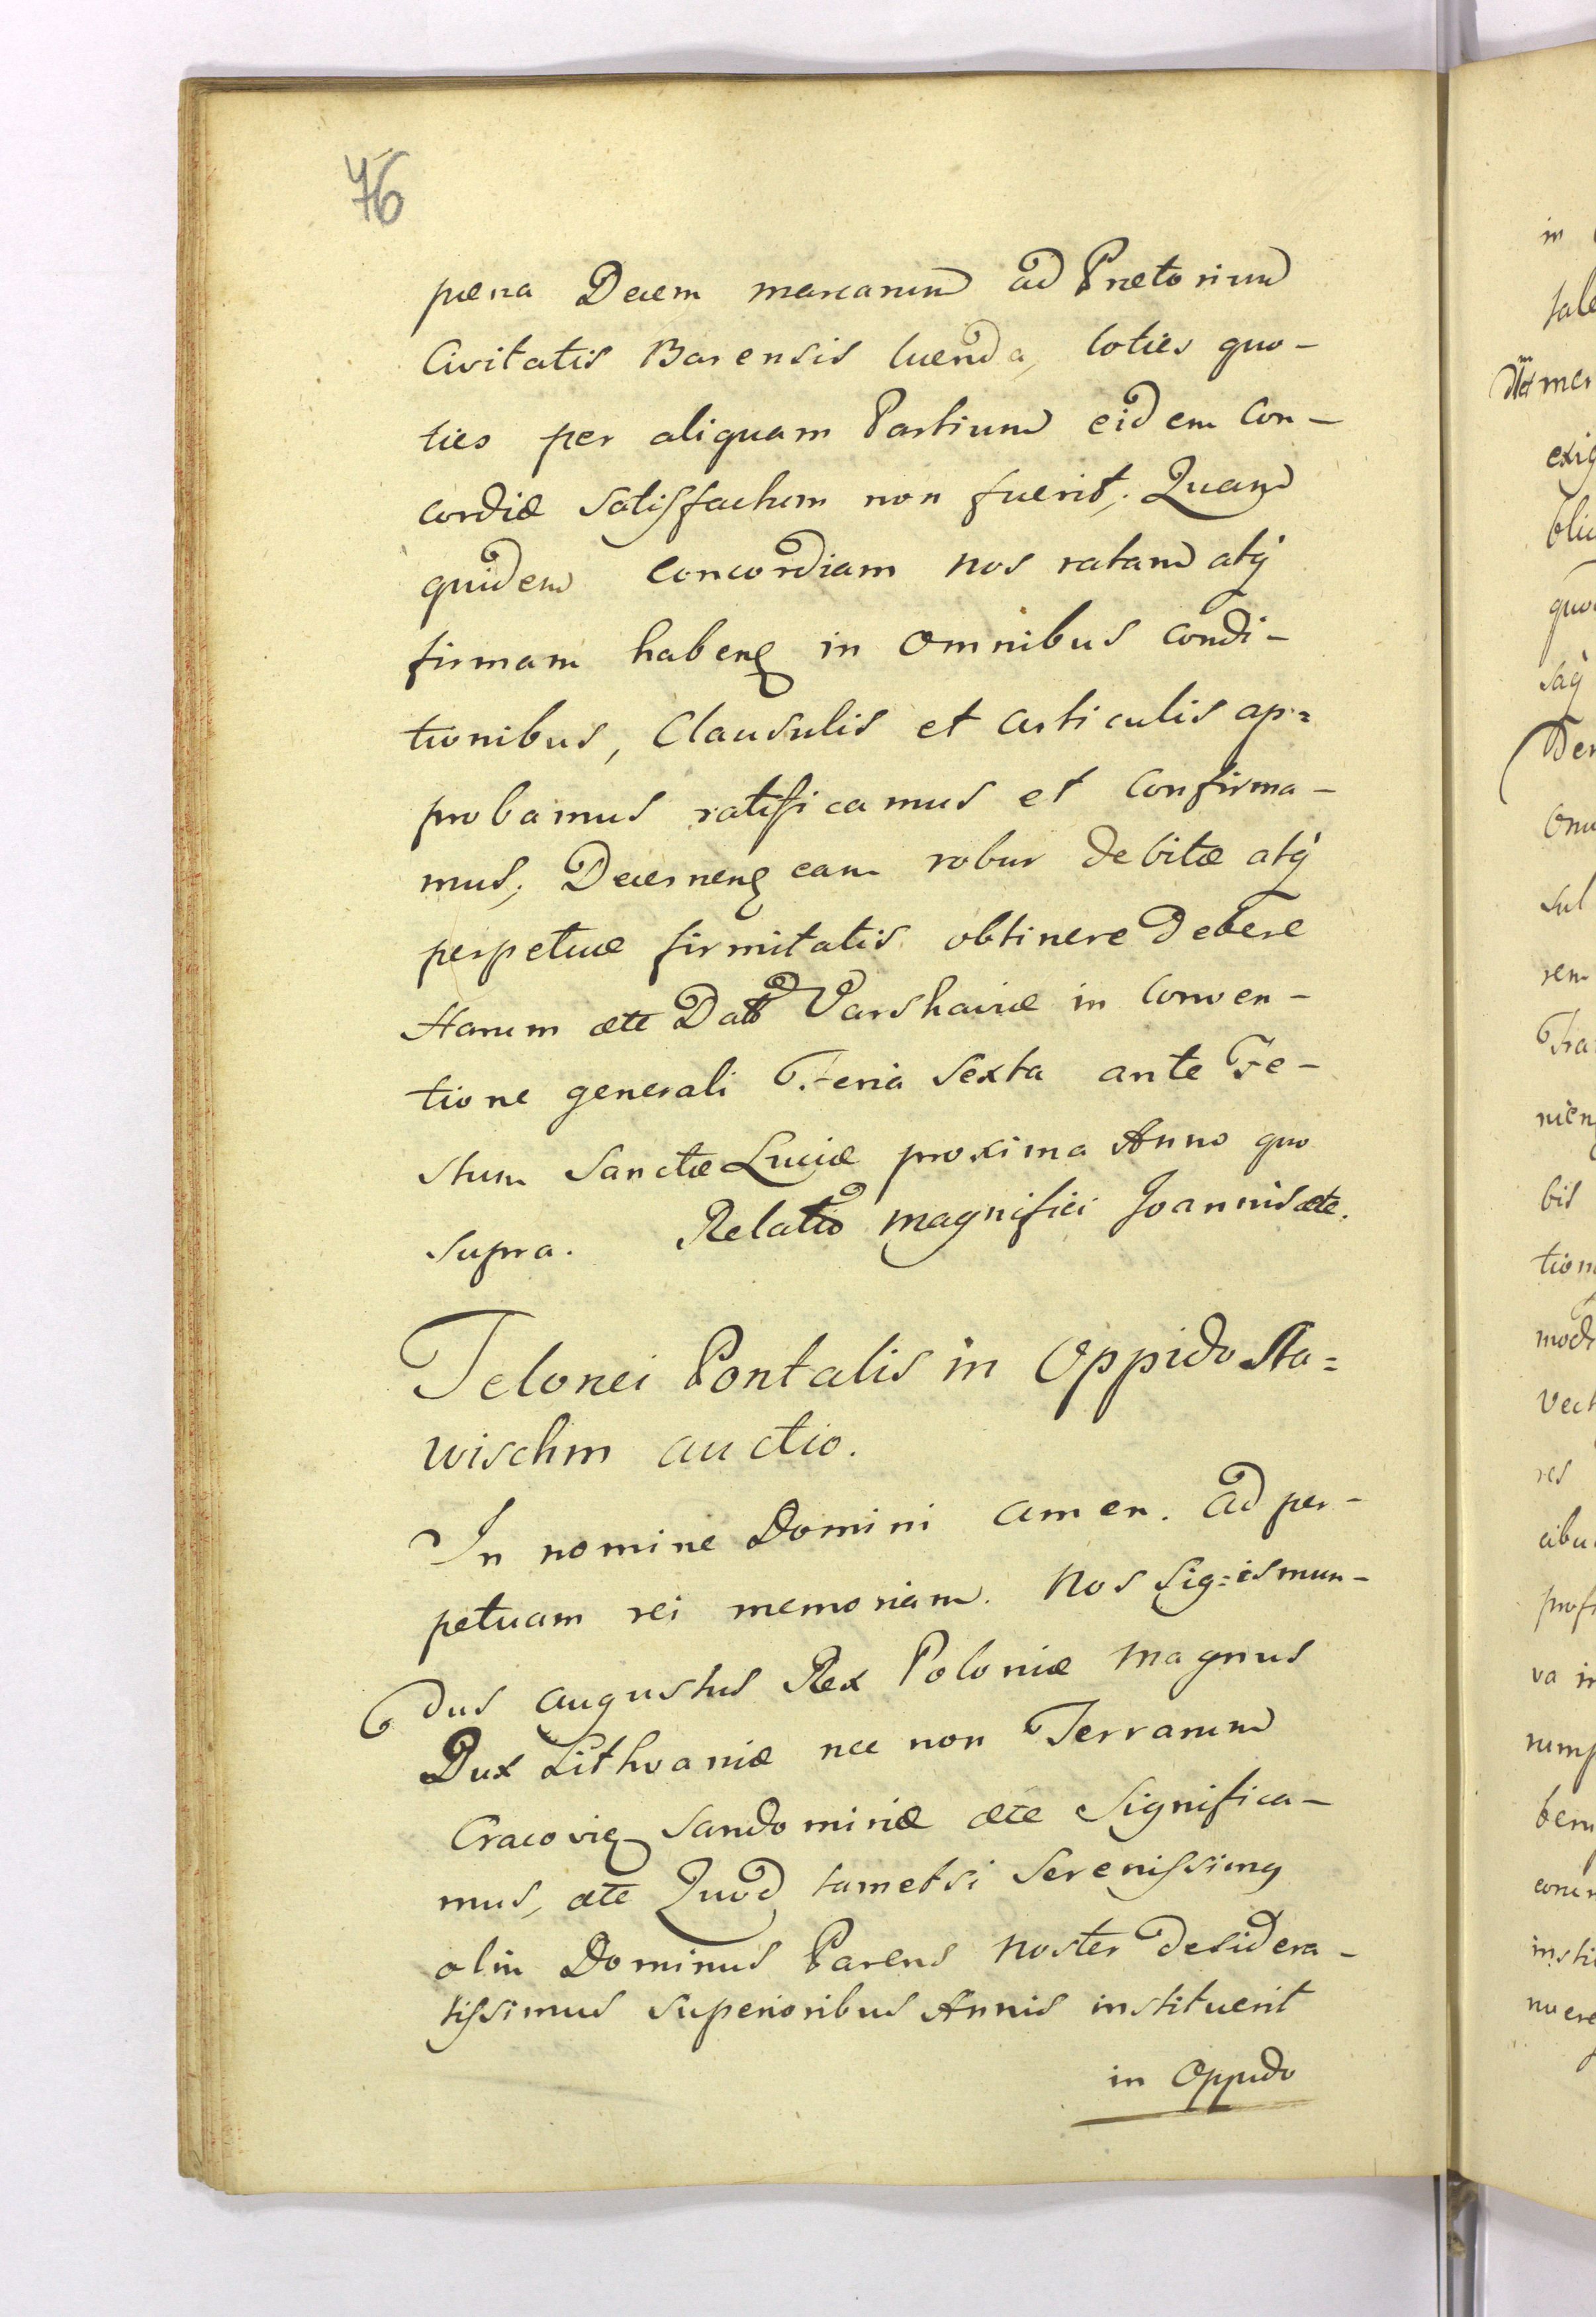 76
pæna Decem marcarum ad Prætorium
Civitatis Barensis luenda, toties quo-
ties per aliquam Partium eidem Con-
cordiæ satisfactum non fuerit; Quam
quidem concordiam nos ratam atq
firmam habenq in omnibus condi-
tionibus, Clausulis et articulis ap=
probamus ratificamus et confirma-
mus; Decernenq eam robur debitæ atq
perpetuæ firmitatis obtinere debere
Harum ætc Datt Varshaviæ in Conven-
tione generali Feria sexta ante Fe-
stum Sanctæ Luciæ proxima Anno quo
supra. Relatio magnifici Joannis ætc.
Telonei Pontalis in Oppido Sta=
wischin auctio.
In nomine Domini amen. Ad per-
petuam rei memoriam. Nos Sig=ismun-
dus Augustus Rex Poloniæ magnus
Dux Lithvaniæ nec non Terrarum
Cracovię Sandomiriæ ætc Significa-
mus, ætc Quod tametsi Serenissimq
olim Dominus Parens noster desidera-
tissimus superioribus Annis instituerit
in Oppido